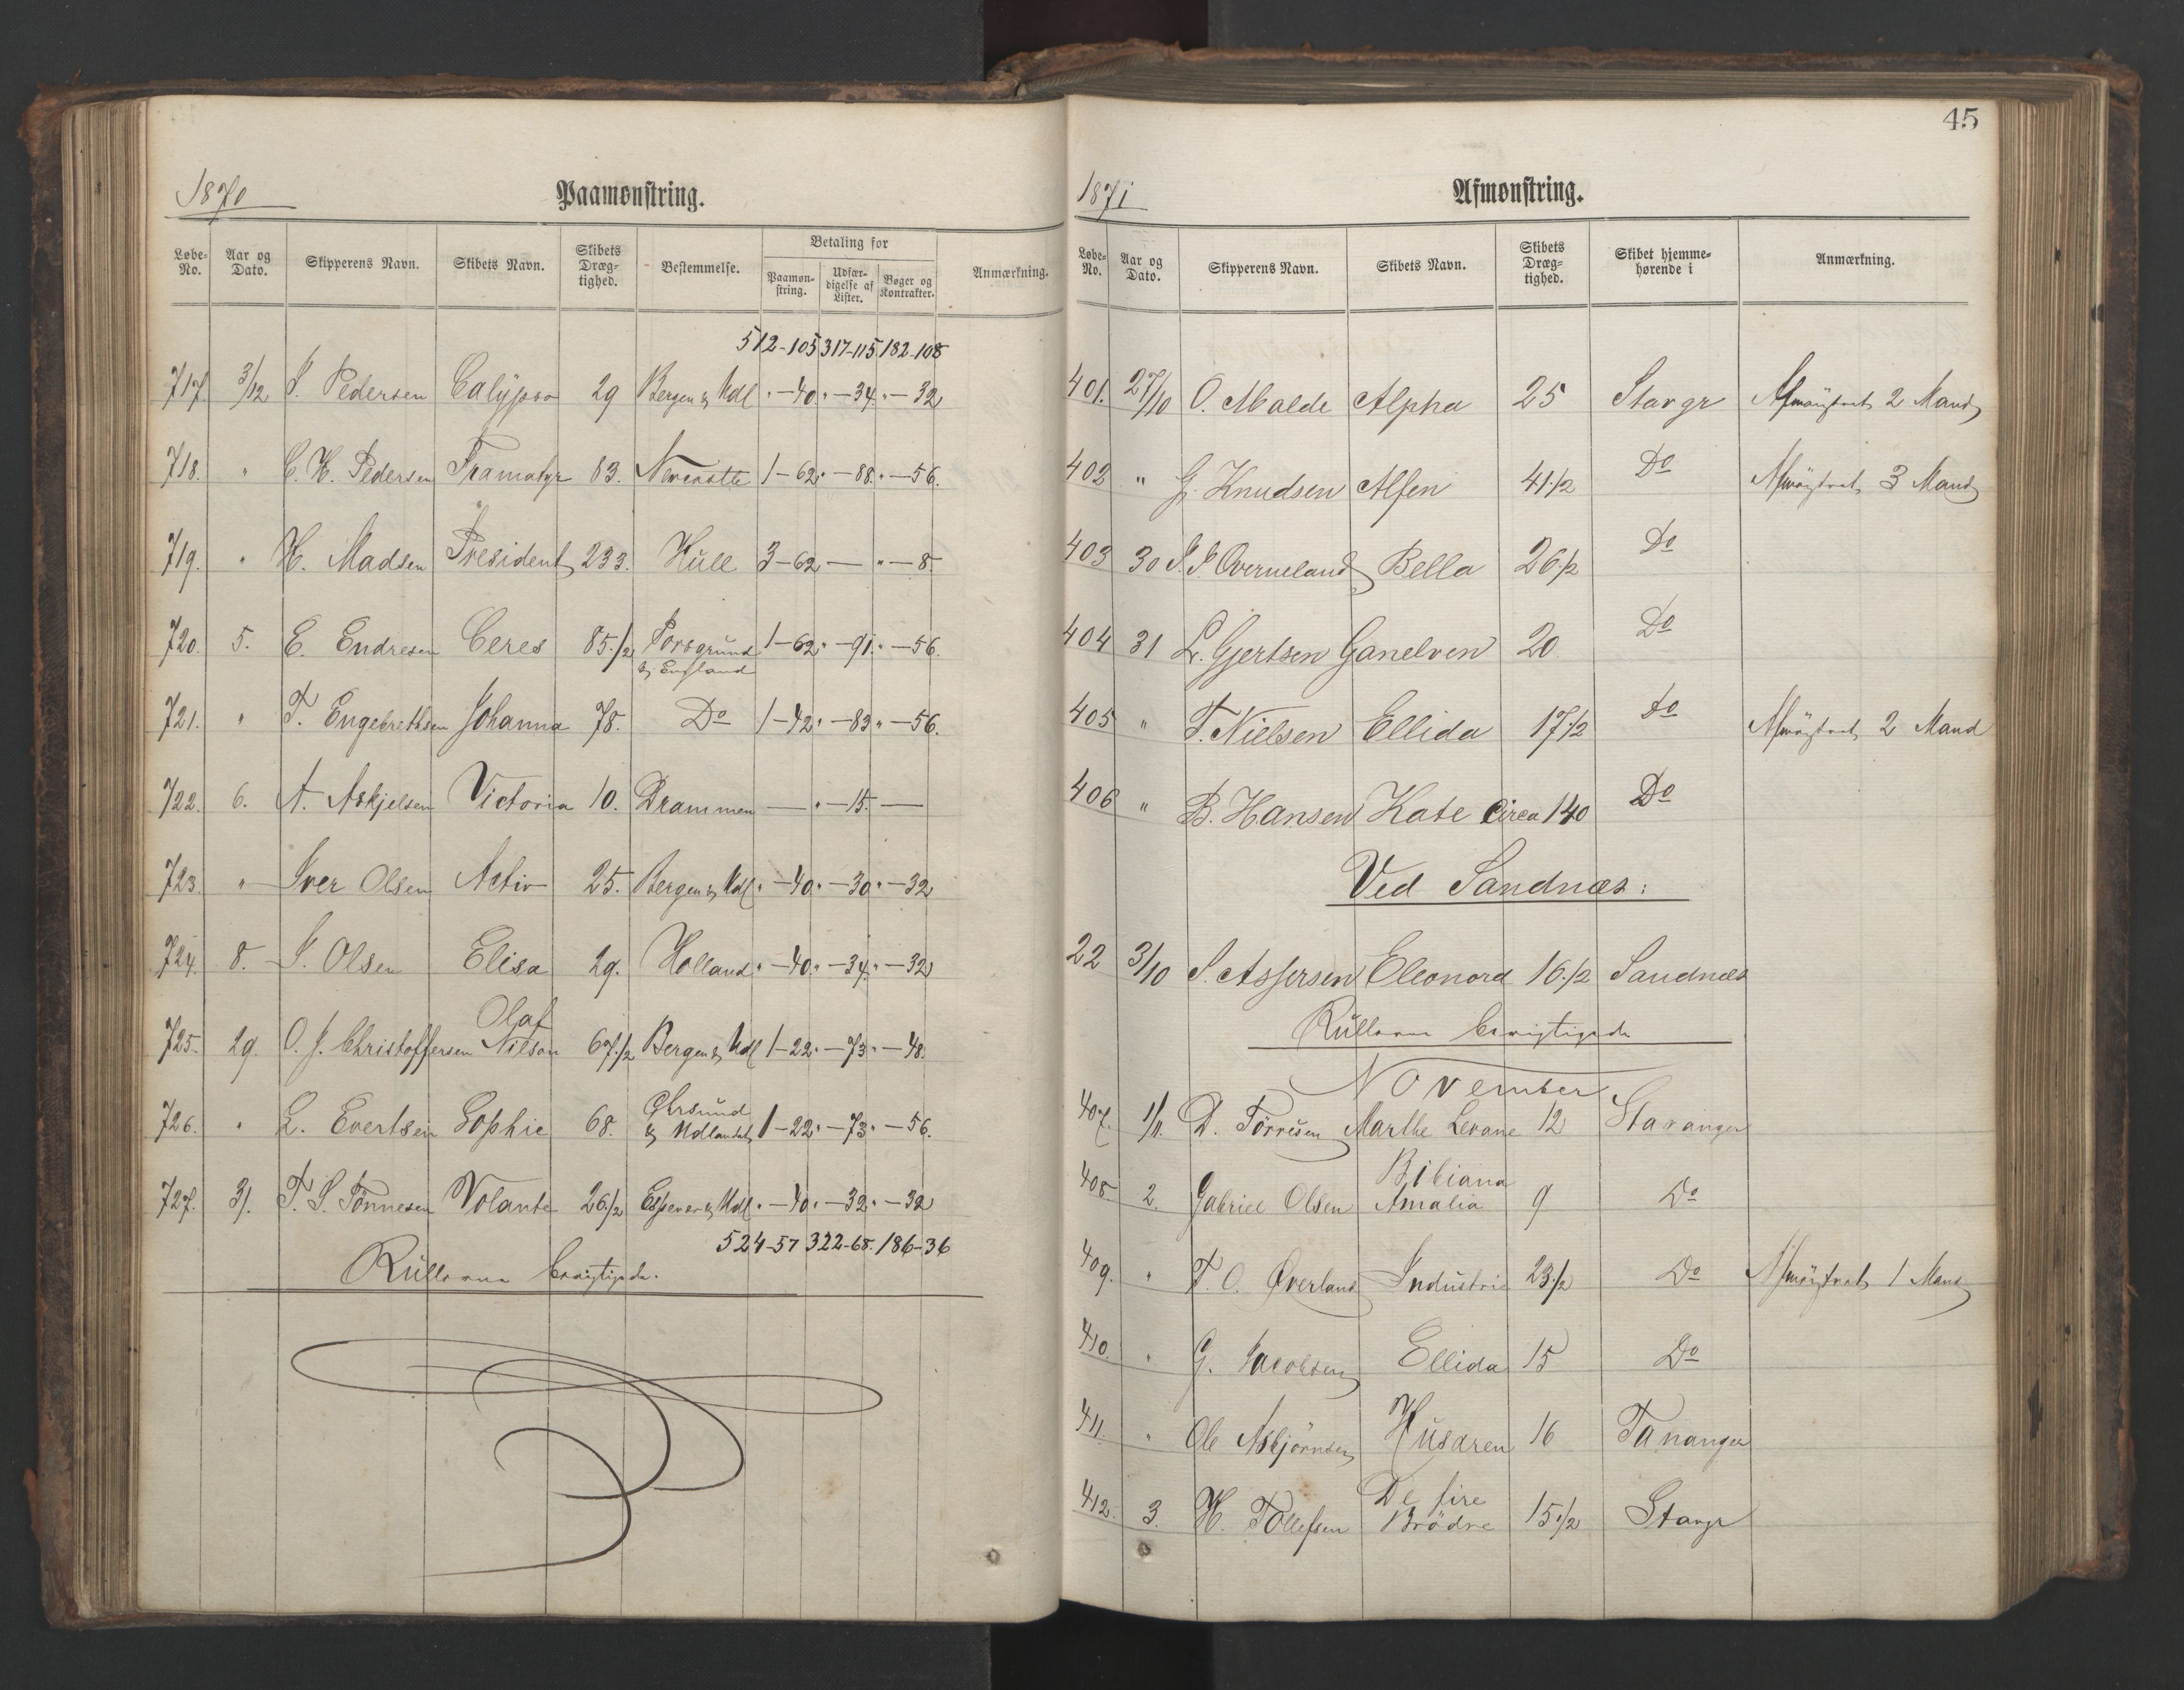 1870
Paamønstring.
Løbe-No. Aar og Dato. Skipperens Navn. Skibets Navn. Skibets Dræg-tighed. Bestemmelse. Betaling for Paamøn-string. Udfær-digelse af Lister. Bøger og Kontrakter. Anmærkning.
512-105 317-115 182-108
717. 3/12 J. Pedersen Calypso 29 Bergen & Udl " - 40. " - 34. " - 32
718. " C. H. Pedersen 83. 1-62 " - 88. " - 56.
719. " H. Madsen President 233. Hull 3-62 — " - 8.
720. 5. E. Endresen Ceres 85 1/2 Porsgrund & England 1-62 " - 91. " - 56.
721. " T. Engebrethsen Johanna 78. Do 1-42 " - 83 " - 56.
722. 6. A. Askjelsen Victoria 10. Drammen — " - 15. —
723. " Iver Olsen Activ 25. Bergen & Udl " - 40. " - 30 " - 32
724. 8. J. Olsen Elisa 29. Holland " - 40. " - 34. " - 32
725. 29. O. J. Christoffersen Olaf Nilson 67 1/2 Bergen & Udl 1-22 " - 73 " - 48.
726. " L. Evertsen Sophie 68. & Udlandet 1-22 " - 73 " - 56.
727. 31. T. S. Tönnesen Volante 26 1/2 & Udl. " - 40. " - 32 " - 32
524-57 322-68. 186-36
Rullerne berigtigede.
45
1871
Afmønstring.
Løbe-No. Aar og Dato. Skipperens Navn. Skibets Navn. Skibets Dræg-tighed. Skibet hjemme-hørende i Anmærkning.
401. 27/10 O. Malde Alpha 25 Stavgr Afmönstret 2 Mand
402 " G. Knudsen Alfen 41 1/2 Do Afmönstret 3 Mand
403 30 Bella 26 1/2 Do
404 31 L. Gjertsen Ganelven 20 Do
405 " T. Nielsen Ellida 17 1/2 Do Afmönstret 2 Mand
406 " B. Hansen Kate Circa 140 Do
Ved Sandnæs:
22 3/10 S. Assersen Eleonora 16 1/2 Sandnæs
Rullerne berigtigede
November
407. 1/11. D. Törresen Marthe Levane 12 Stavanger
408 2. Gabriel Olsen Bibiana Amalia 9 Do
409. " T. O. Øverland Industri 23 1/2 Do Afmönstret 1 Mand
410. " G. Jacobsen Ellida 15 Do
411. " Ole Asbjörnsen Husaren 16 Tananger
412. 3. H. Tollefsen De fire Brödre 15 1/2 Stavgr